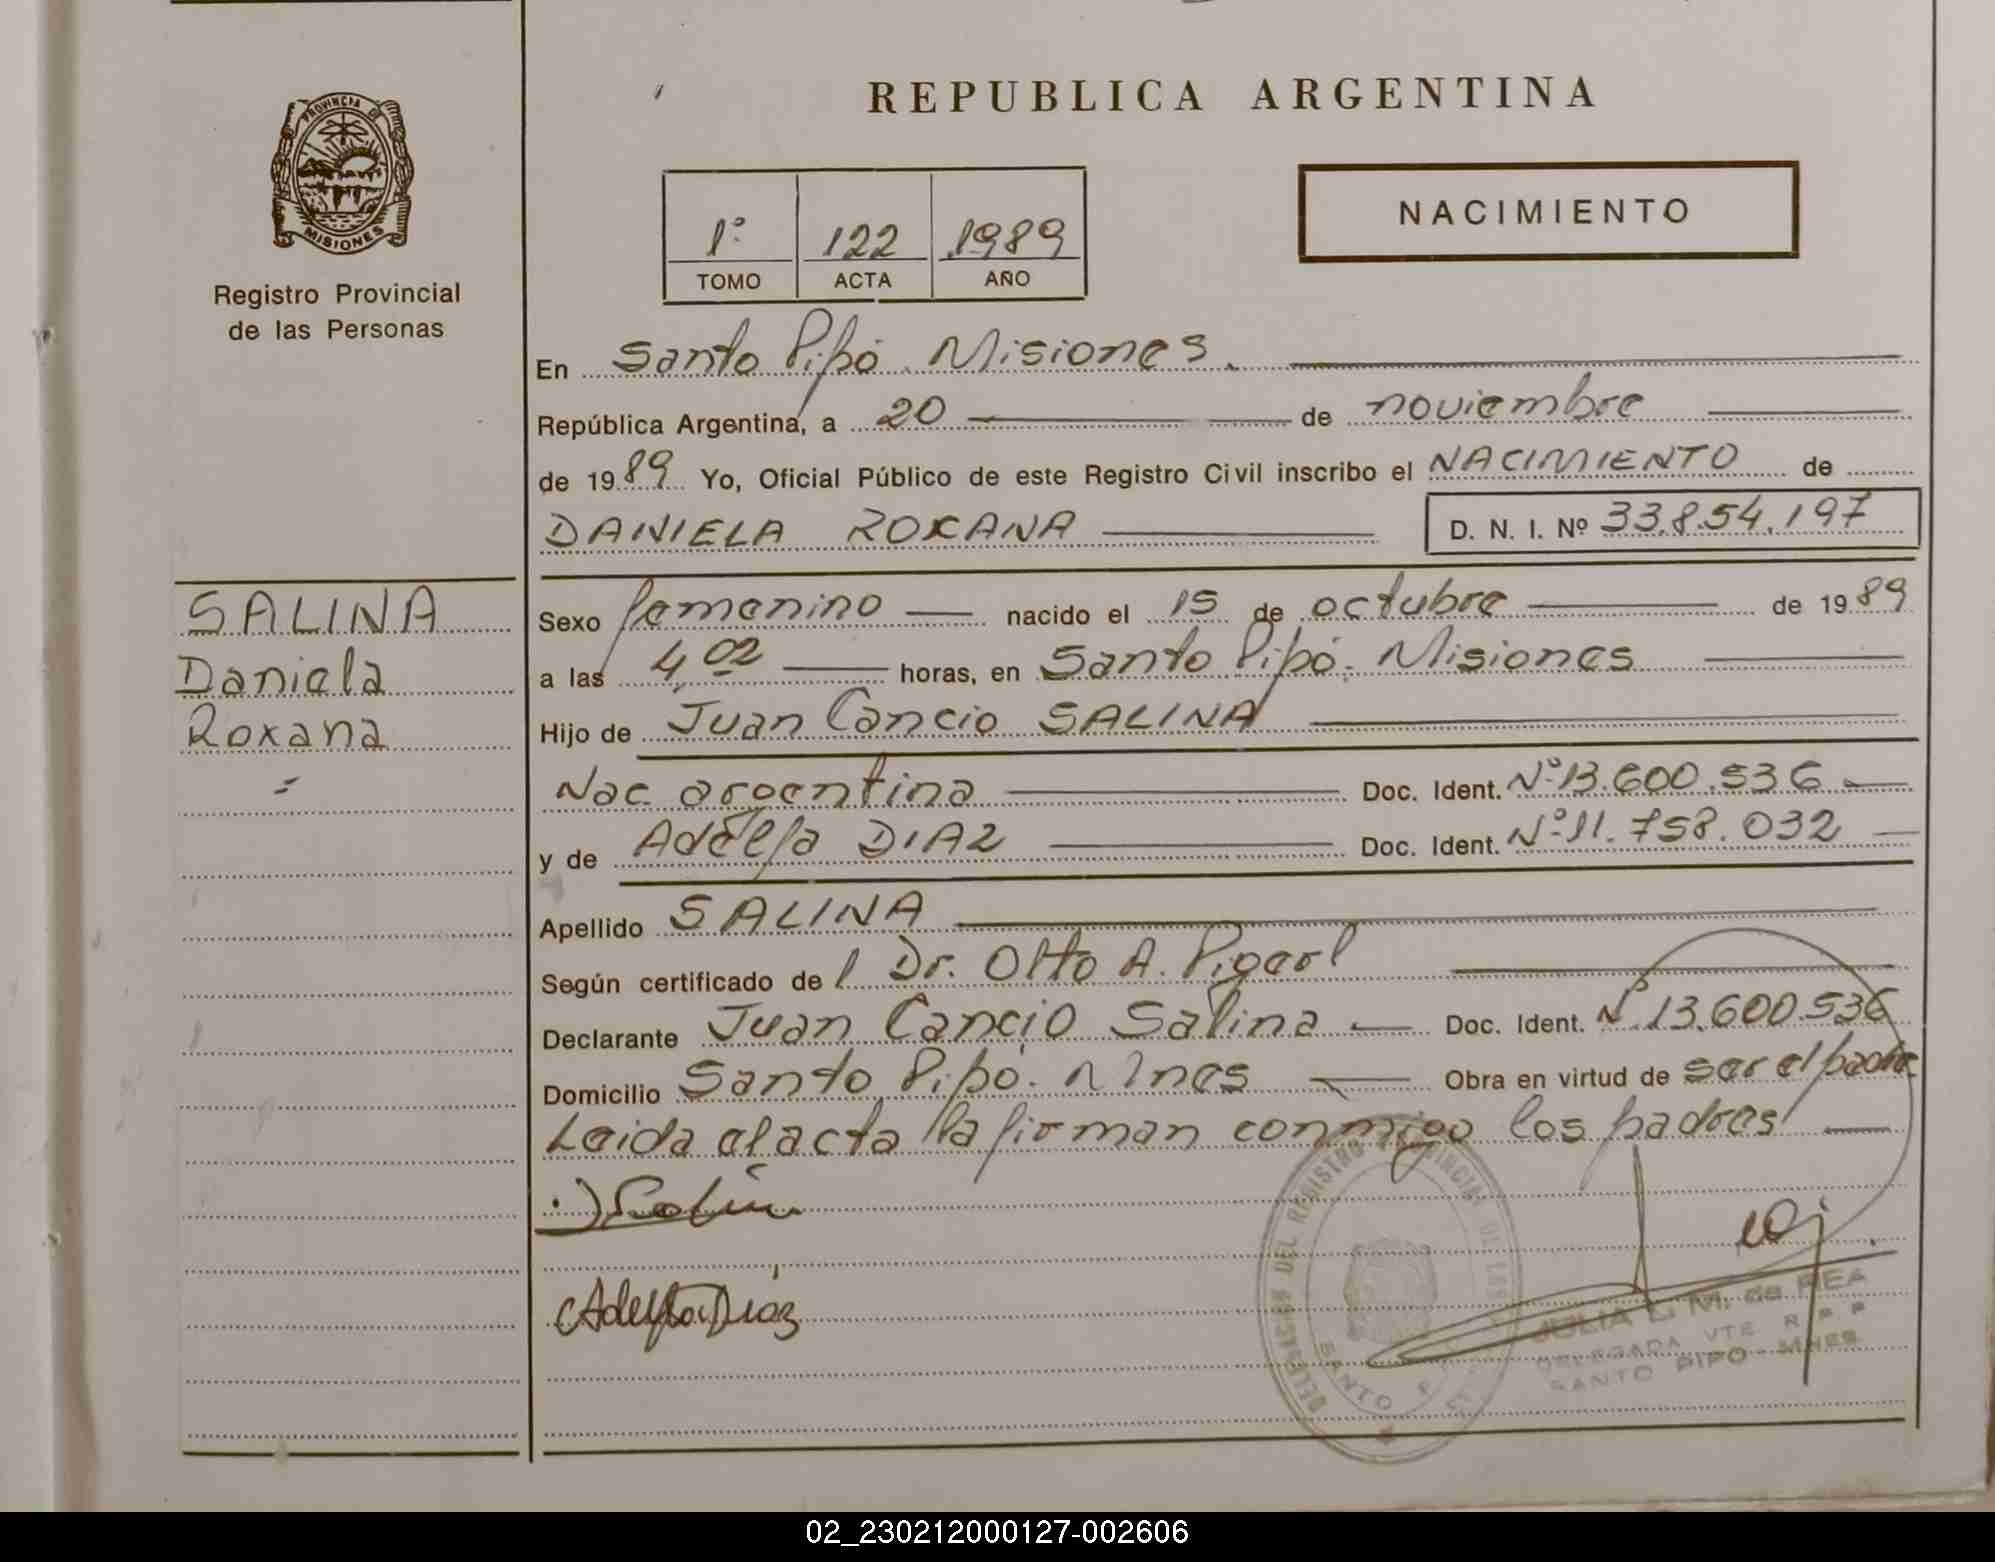 REPUBLICA ARGENTINA
PROVINCIA DE
MISIONES
Registro Provincial
de las Personas
1º 122 1989
TOMO ACTA AÑO
NACIMIENTO
En Santo Pipó. Misiones.
República Argentina, a 20 de noviembre
de 1989 Yo, Oficial Público de este Registro Civil inscribo el NACIMIENTO de
DANIELA ROXANA D. N. I. Nº 33.854.197
SALINA
Daniela
Roxana
=
Sexo femenino nacido el 15 de octubre de 1989
a las 4,02 horas, en Santo Pipó. Misiones
Hijo de Juan Cancio SALINA
Nac argentina Doc. Ident. Nº 13.600.536
y de Adelfa DIAZ Doc. Ident. Nº 11.758.032
Apellido SALINA
Según certificado del Dr. Otto A. Pigerl
Declarante Juan Cancio Salina Doc. Ident. Nº 13.600.536
Domicilio Santo Pipó. Mnes Obra en virtud de ser el padre
Leida el acta la firman conmigo los padres
Adelfa Diaz
DELEGACION DEL REGISTRO PROVINCIAL DE LAS
SANTO
JULIA L. M. de REA
DELEGADA VTE R. P. P
SANTO PIPO - MNES
02_230212000127-002606